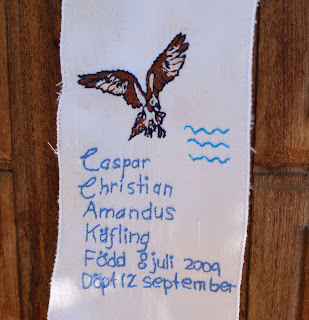 Caspar
Christian
Amandus
Käfling
Född 8 juli 2009
Döpt 12 september